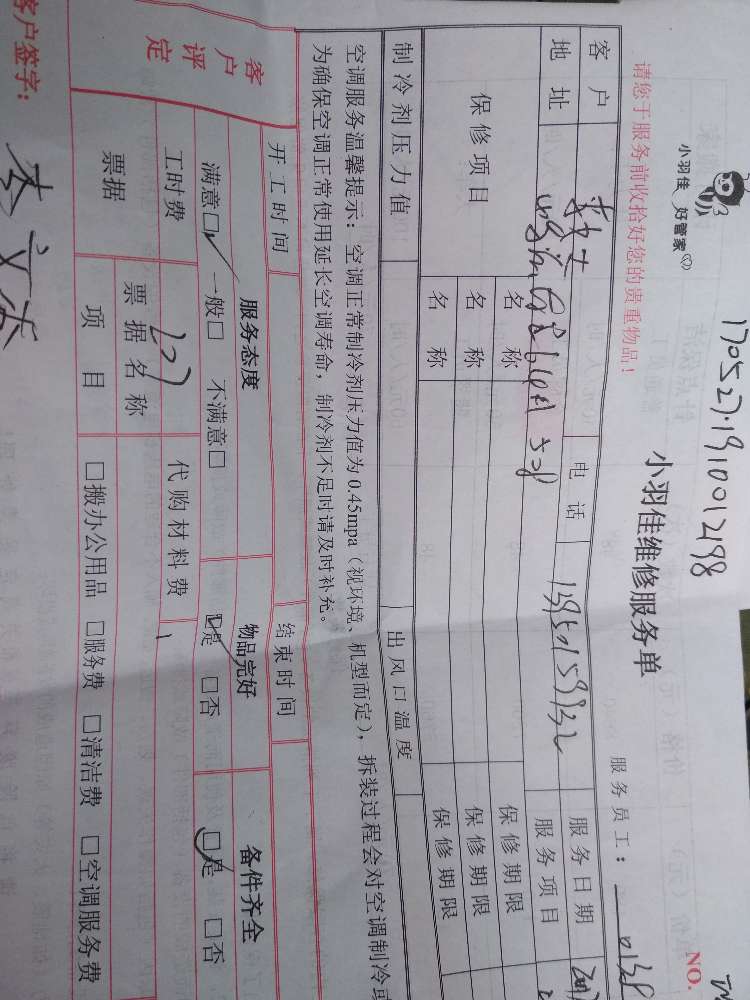 170527·1910012198
小羽佳 好管家
小羽佳维修服务单
NO.
请您于服务前收拾好您的贵重物品！
服务员工：
客户 电话 服务日期
地址 服务项目
保修项目 名称 保修期限
名称 保修期限
名称 保修期限
制冷剂压力值 出风口温度
空调服务温馨提示：空调正常制冷剂压力值为0.45mpa（视环境、机型而定），拆装过程会对空调制冷
为确保空调正常使用延长空调寿命，制冷剂不足时请及时补充。
开工时间 结束时间
客户评定 服务态度 物品完好 备件齐全
满意□ 一般□ 不满意□ □是 □否 □是 □否
工时费 127 代购材料费
票据 票据名称
项目 □搬办公用品 □服务费 □清洁费 □空调服务费
客户签字：